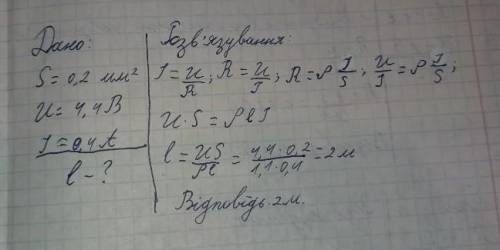 Дано:
S = 0,2 мм²
U = 4,4 В
I = 0,4 А
l - ?
Розв'язування:
I = U/R; R = U/I; R = ρ I/S; U/I = ρ I/S;
U · S = ρ l I
l = US/ρl = 4,4 · 0,2/1,1 · 0,4 = 2 м
Відповідь. 2 м.